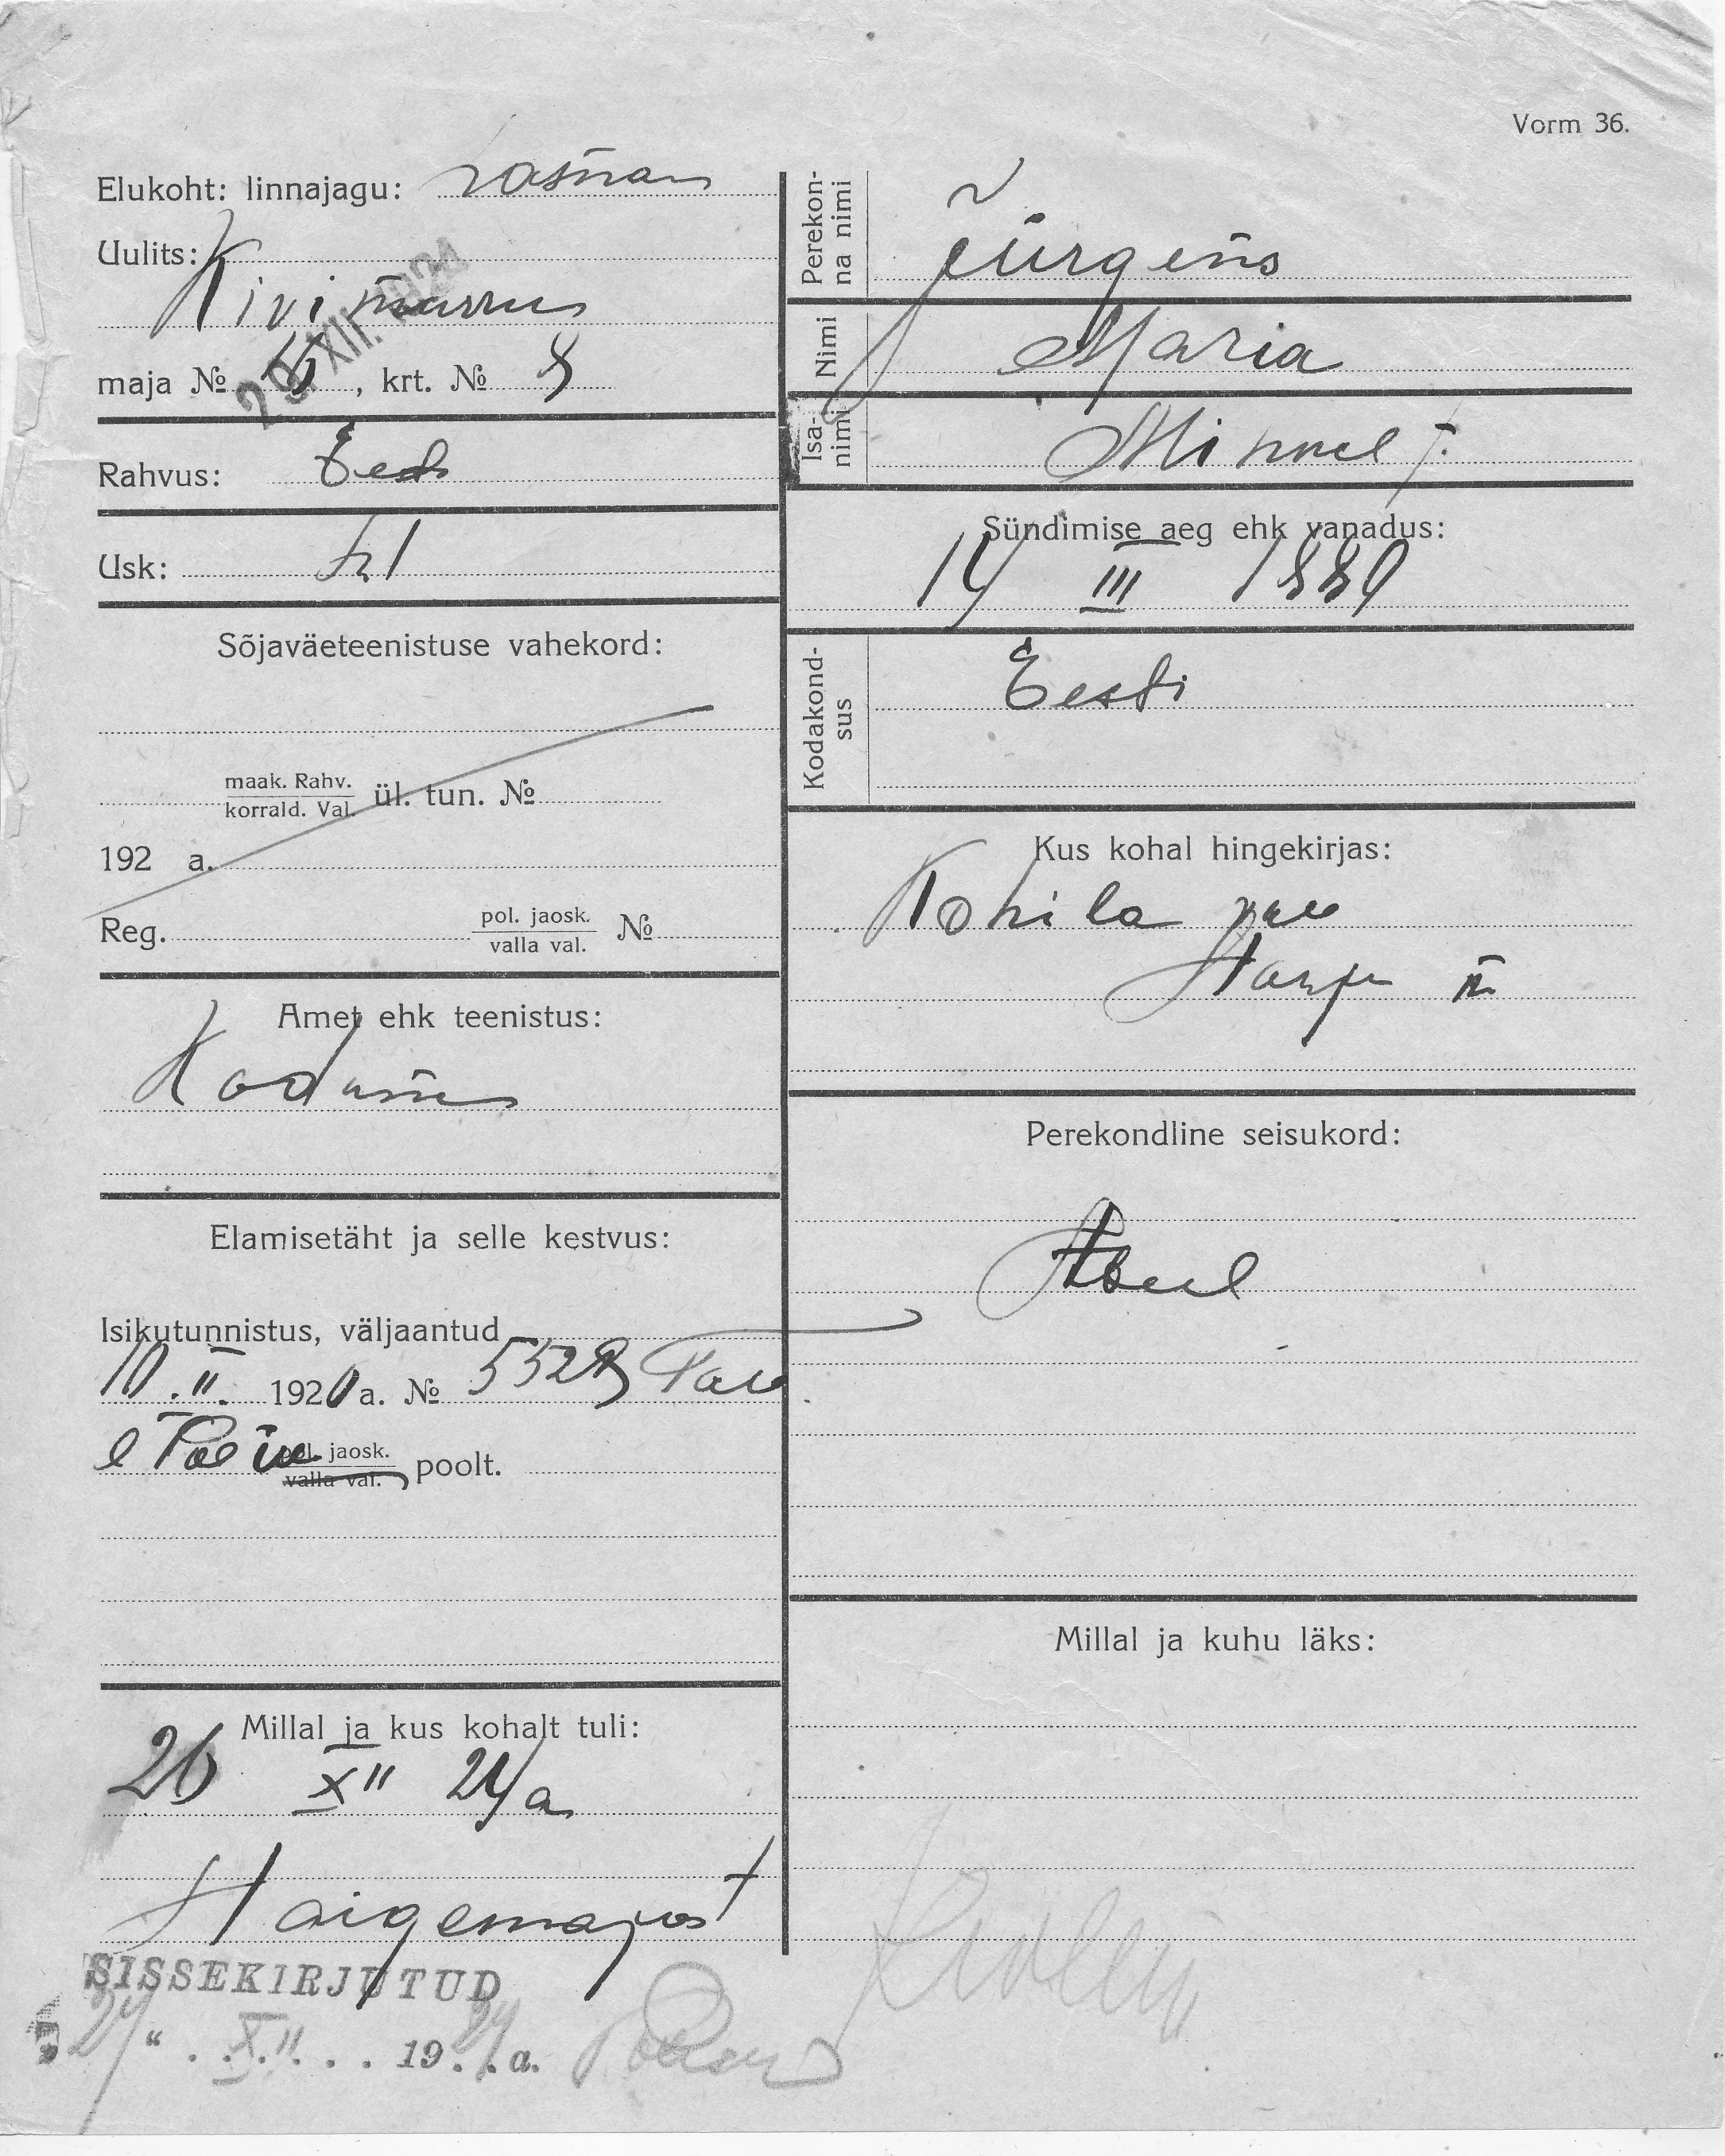 Vorm 36.
Elukoht: linnajagu:
Uulits:
Kivimurru
29. XII. 1924
maja № 5, krt. № 8
Rahvus: Eesti
Usk: Lut
Sõjaväeteenistuse vahekord:
maak. Rahv.
korrald. Val. ül. tun. №
192 a.
Reg. pol. jaosk.
valla val. №
Amet ehk teenistus:
Kodune
Elamisetäht ja selle kestvus:
Isikutunnistus, väljaantud
10. II. 1920 a. №
pol. jaosk.
valla val. poolt.
Millal ja kus kohalt tuli:
26 XII 24 a
Haigemajast
SISSEKIRJUTUD
" 29 " XII 1924 a.
Perekon-
na nimi
Jürgens
Nimi
Maria
Isa-
nimi
Mihkel t.
Sündimise aeg ehk vanadus:
14 III 1880
Kodakond-
sus
Eesti
Kus kohal hingekirjas:
Kohila
Harju m
Perekondline seisukord:
Abiel
Millal ja kuhu läks: